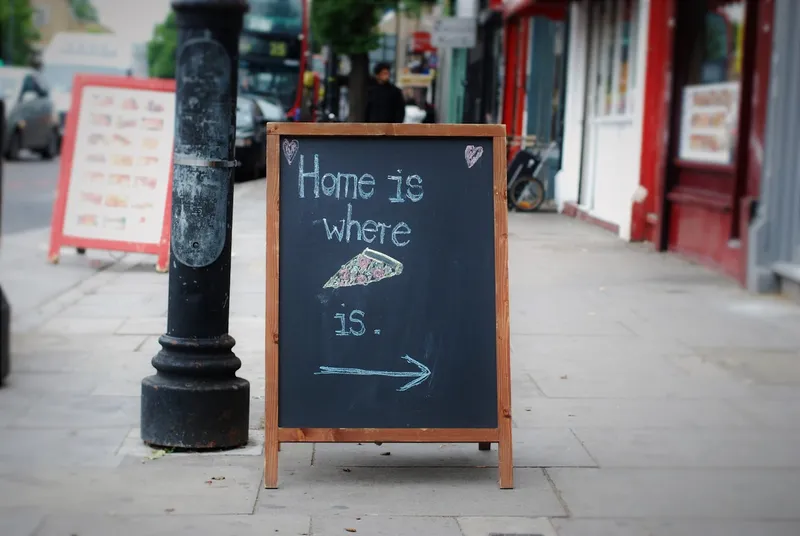 Home is
where
is.